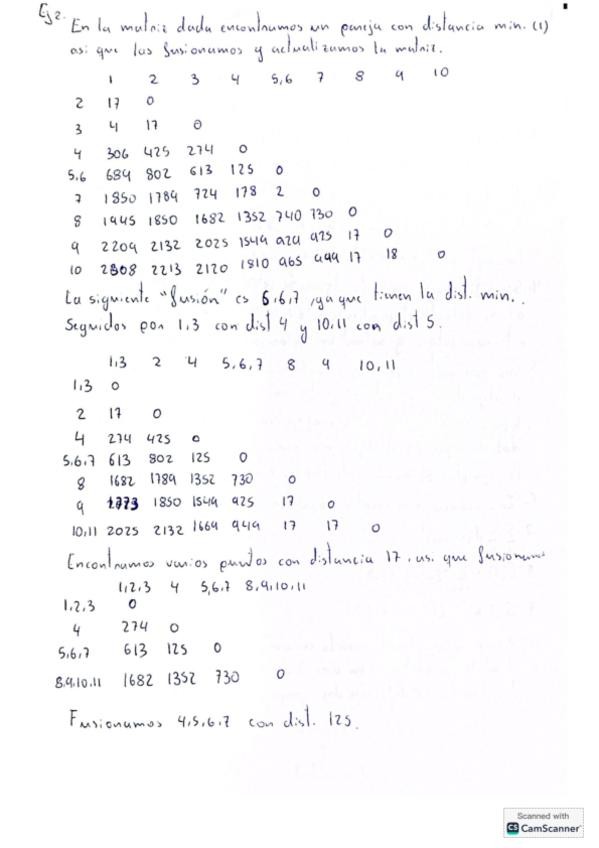 Ej 2. En la matriz dada encontramos un pareja con distancia min. (1)
asi que los fusionamos y actualizamos la matriz.
1 2 3 4 5,6 7 8 9 10
2 17 0
3 4 17 0
4 306 425 274 0
5,6 684 802 613 125 0
7 1850 1789 724 178 2 0
8 1945 1850 1682 1352 740 730 0
9 2209 2132 2025 1549 929 925 17 0
10 2308 2213 2120 1810 965 949 17 18 0
La siguiente "fusión" es 5,6,7, ya que tienen la dist. min.
Seguidos por 1,3 con dist 4 y 10,11 con dist 5.
1,3 2 4 5,6,7 8 9 10,11
1,3 0
2 17 0
4 274 425 0
5,6,7 613 802 125 0
8 1682 1789 1352 730 0
9 1773 1850 1549 925 17 0
10,11 2025 2132 1664 949 17 17 0
Encontramos varios puntos con distancia 17, asi que fusionamos
1,2,3 4 5,6,7 8,9,10,11
1,2,3 0
4 274 0
5,6,7 613 125 0
8,9,10,11 1682 1352 730 0
Fusionamos 4,5,6,7 con dist. 125.
Scanned with
CS CamScanner